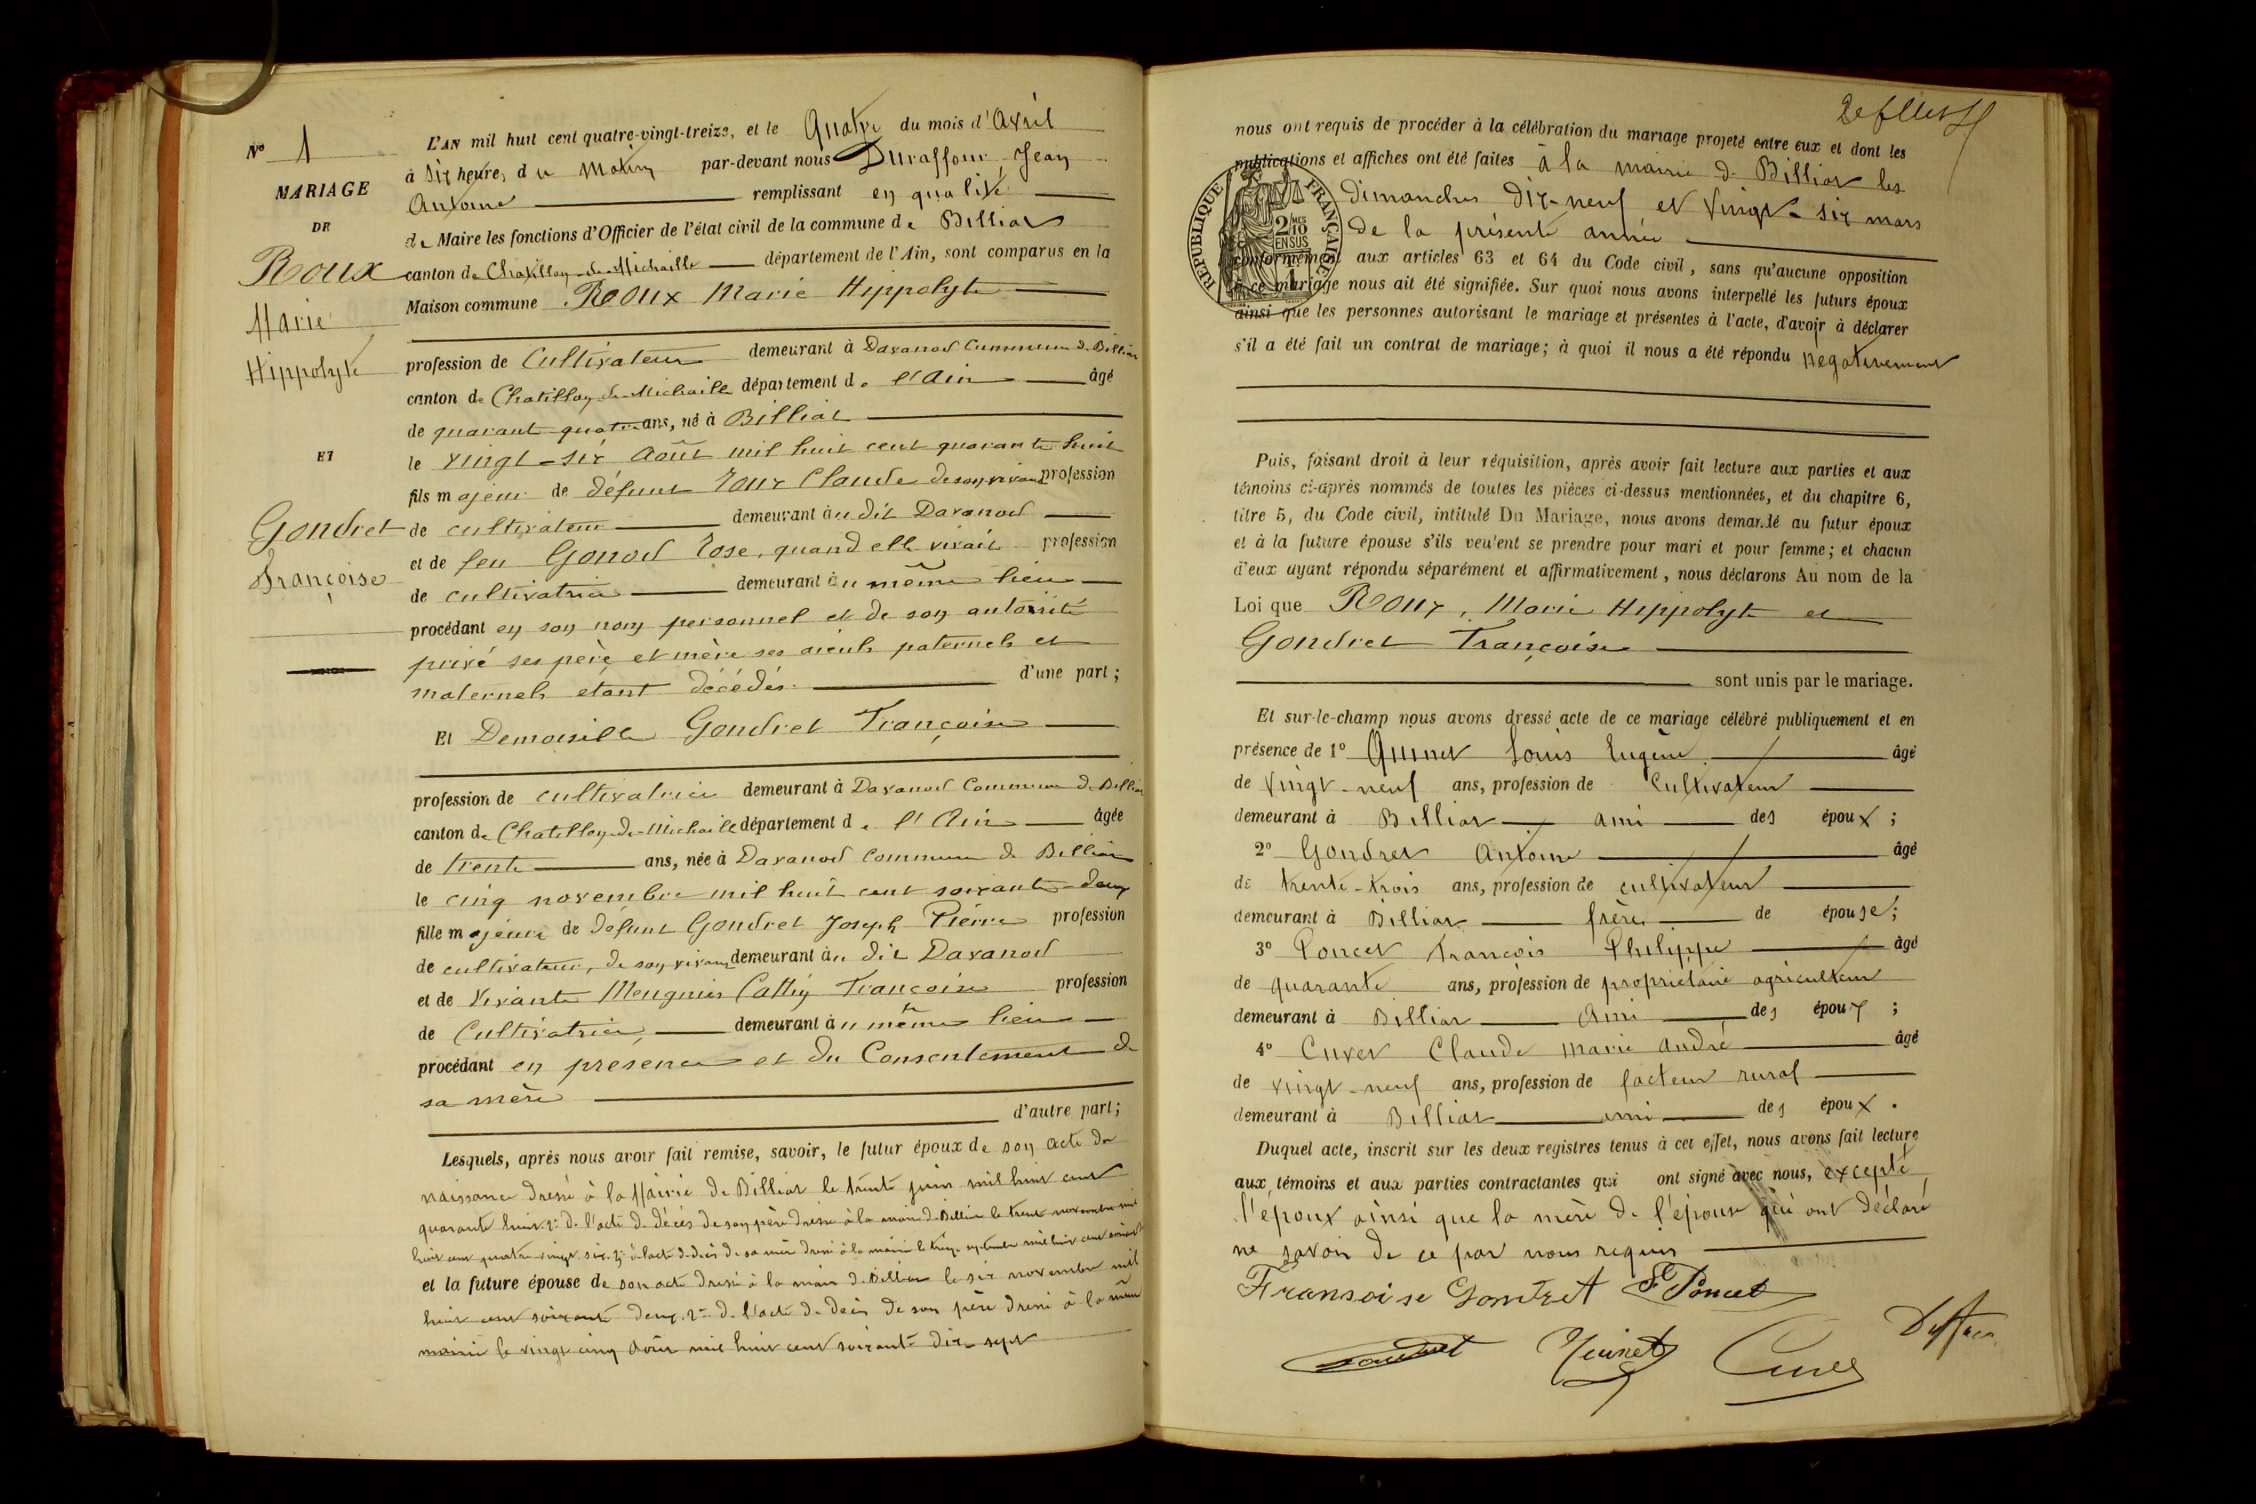 N° 1
MARIAGE
DE
Roux
Marie
Hippolyte
ET
Gondret
Françoise
L'AN mil huit cent quatre-vingt-treize, et le Quatre du mois d'Avril
à six heures du Matin par-devant nous Duraffour Jean
Antoine remplissant en qualité
de Maire les fonctions d'Officier de l'état civil de la commune de Billiat
canton de Chatillon-de-Michaille département de l'Ain, sont comparus en la
Maison commune Roux Marie Hippolyte
profession de Cultivateur demeurant à Davanod Commune de Billiat
canton de Chatillon de Michaille département de l'Ain âgé
de quarant quatre ans, né à Billiat
le vingt-six Août mil huit cent quarante huit
fils majeur de défunt Roux Claude de son vivant profession
de cultivateur demeurant au dit Davanod
et de feu Gonod Rose, quand elle vivait profession
de cultivatrice demeurant au même lieu
procédant en son nom personnel et de son autorité
privé ses père et mère ses aieuls paternels et
maternels etant décédés. d'une part;
Et Demoiselle Gondret Françoise
profession de cultivatrice demeurant à Davanod Commune de Billiat
canton de Chatillon-de-Michaille département de l'Ain âgée
de trente ans, née à Davanod commune de Billiat
le cinq novembre mil huit cent soixante-deux
fille majeure de défunt Gondret Joseph Pierre profession
de cultivateur, de son vivant demeurant au dit Davanod
et de vivante Mengnier Cathy Françoise profession
de Cultivatrice, demeurant au même lieu
procédant en presence et du Consentement de
sa mère
d'autre part;
Lesquels, après nous avoir fait remise, savoir, le futur époux de son acte de
naissance dressé à la Mairie de Billiat le trente juin mil huit cent
quarante huit 2° de l'acte de décès de son père dressé à la mairie de Billiat le trente novembre mil
huit cent quatre-vingt six. 3° de l'acte de décès de sa mère dressé à la mairie le treize septembre mil huit cent
et la future épouse de son acte dressé à la mairie de Billiat le six novembre mil
huit cent soixante deux, 2° de l'acte de décès de son père dressé à la même
mairie le vingt cinq Août mil huit cent soixante dix sept
nous ont requis de procéder à la célébration du mariage projeté entre eux et dont les
publications et affiches ont été faites à la mairie de Billiat les
dimanches dix-neuf et vingt-six mars
de la présente année
conformément aux articles 63 et 64 du Code civil, sans qu'aucune opposition
à ce mariage nous ait été signifiée. Sur quoi nous avons interpellé les futurs époux
ainsi que les personnes autorisant le mariage et présentes à l'acte, d'avoir à déclarer
s'il a été fait un contrat de mariage; à quoi il nous a été répondu négativement
RÉPUBLIQUE FRANÇAISE
2/10 MES
EN SUS
Puis, faisant droit à leur réquisition, après avoir fait lecture aux parties et aux
témoins ci-après nommés de toutes les pièces ci-dessus mentionnées, et du chapitre 6,
titre 5, du Code civil, intitulé Du Mariage, nous avons demandé au futur époux
et à la future épouse s'ils veulent se prendre pour mari et pour femme; et chacun
d'eux ayant répondu séparément et affirmativement, nous déclarons Au nom de la
Loi que Roux, Marie Hippolyte et
Gondret Françoise
sont unis par le mariage.
Et sur-le-champ nous avons dressé acte de ce mariage célébré publiquement et en
présence de 1° Quinet Louis Eugène âgé
de vingt-neuf ans, profession de Cultivateur
demeurant à Billiat ami des époux;
2° Gondret Antoine âgé
de trente-trois ans, profession de cultivateur
demeurant à Billiat frère de épouse;
3° Poncet François Philippe âgé
de quarante ans, profession de propriétaire agriculteur
demeurant à Billiat Ami des époux;
4° Cuvet Claude Marie André âgé
de vingt-neuf ans, profession de facteur rural
demeurant à Billiat ami des époux.
Duquel acte, inscrit sur les deux registres tenus à cet effet, nous avons fait lecture
aux témoins et aux parties contractantes qui ont signé avec nous, excepté
l'époux ainsi que la mère de l'épouse qui ont déclaré
ne savoir de ce par nous requis
Fransoise Gondret F Poncet
Gondret Quinet Cuvet